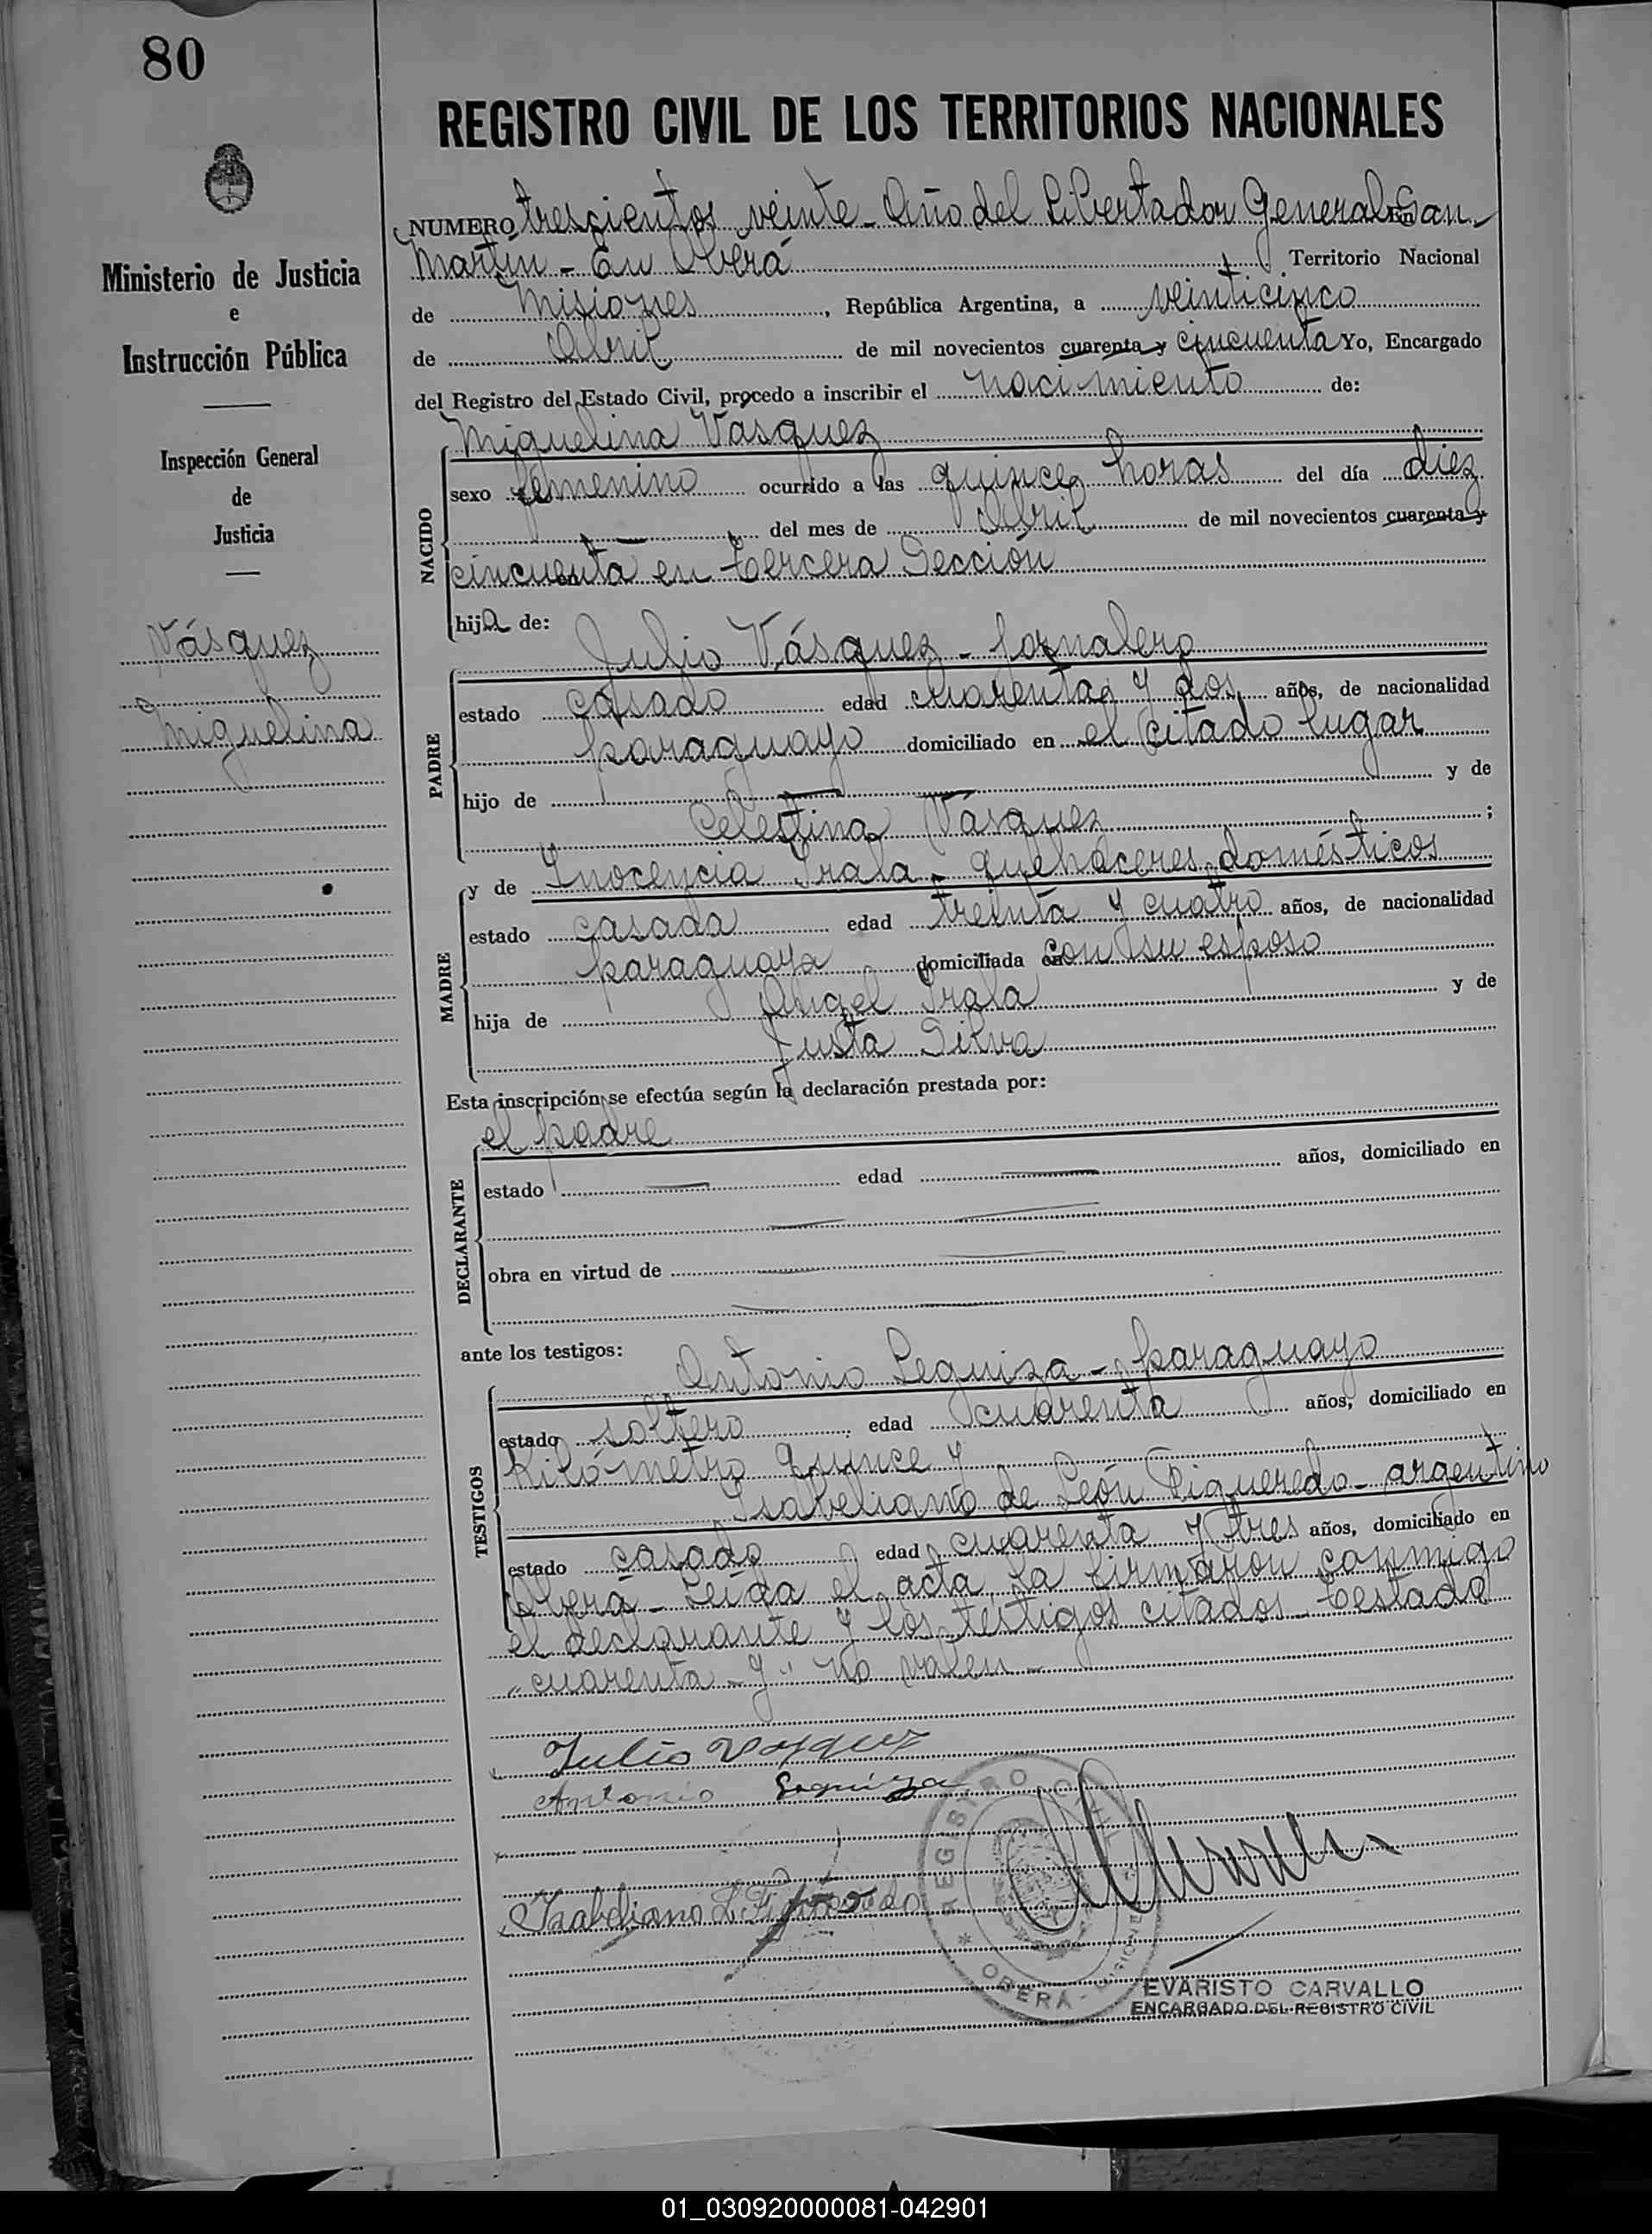 80
REGISTRO CIVIL DE LOS TERRITORIOS NACIONALES
Ministerio de Justicia
e
Instrucción Pública
Inspección General
de
Justicia
Vásquez
Miguelina
NUMERO trescientos veinte - Año del Libertador General San
Martín - En Oberá Territorio Nacional
de Misiones, República Argentina, a veinticinco
de Abril de mil novecientos cuarenta y cincuenta Yo, Encargado
del Registro del Estado Civil, procedo a inscribir el nacimiento de:
Miguelina Vasquez
NACIDO
sexo femenino ocurrido a las quince horas del día diez
del mes de Abril de mil novecientos cuarenta y
cincuenta en tercera Sección
hija de:
Julio Vásquez - jornalero
PADRE
estado casado edad cuarenta y dos años, de nacionalidad
paraguayo domiciliado en el citado lugar
hijo de y de
Celestina Vásquez ;
y de Inocencia Irala - quehaceres domésticos
MADRE
estado casada edad treinta y cuatro años, de nacionalidad
paraguaya domiciliada con su esposo
hija de Angel Irala y de
Justa Silva
Esta inscripción se efectúa según la declaración prestada por:
el padre
DECLARANTE
estado edad años, domiciliado en
obra en virtud de
ante los testigos:
Antonio Leguiza - paraguayo
TESTIGOS
estado soltero edad cuarenta años, domiciliado en
Kilómetro quince y
Isabeliano de León Figueredo - argentino
estado casado edad cuarenta y tres años, domiciliado en
Oberá - Leída el acta la firmaron conmigo
el declarante y los testigos citados - testado
"cuarenta - y" no valen -
Julio Vasquez
Antonio Leguiza
Isabeliano L. Figueredo
REGISTRO CIVIL
* OBERA - MISIONES
EVARISTO CARVALLO
ENCARGADO DEL REGISTRO CIVIL
01_030920000081-042901